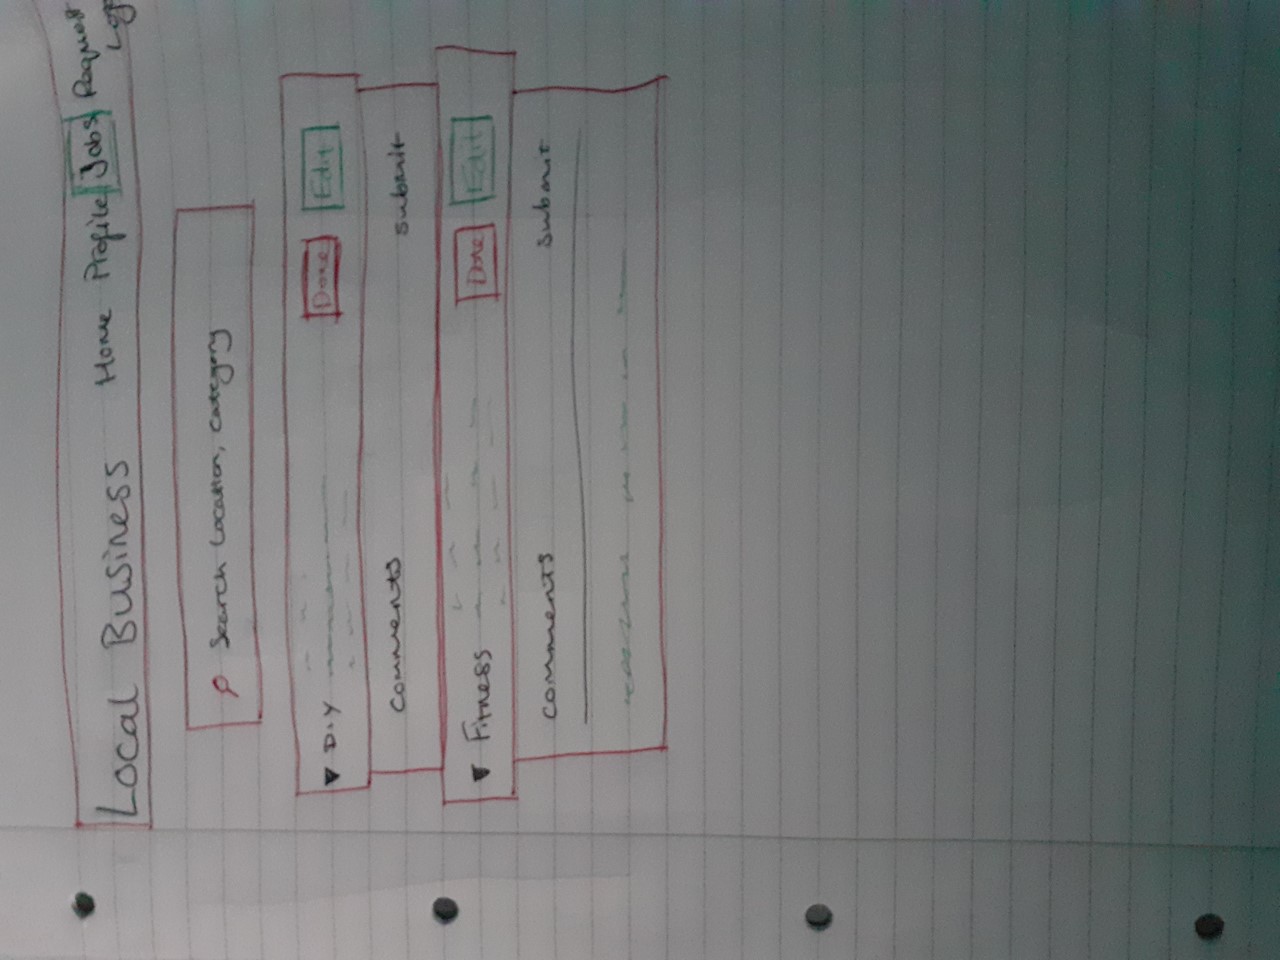 Local Business Home Profile Jobs Request
Search Location, Category
DIY Done Edit
Comments submit
Fitness Done Edit
Comments submit